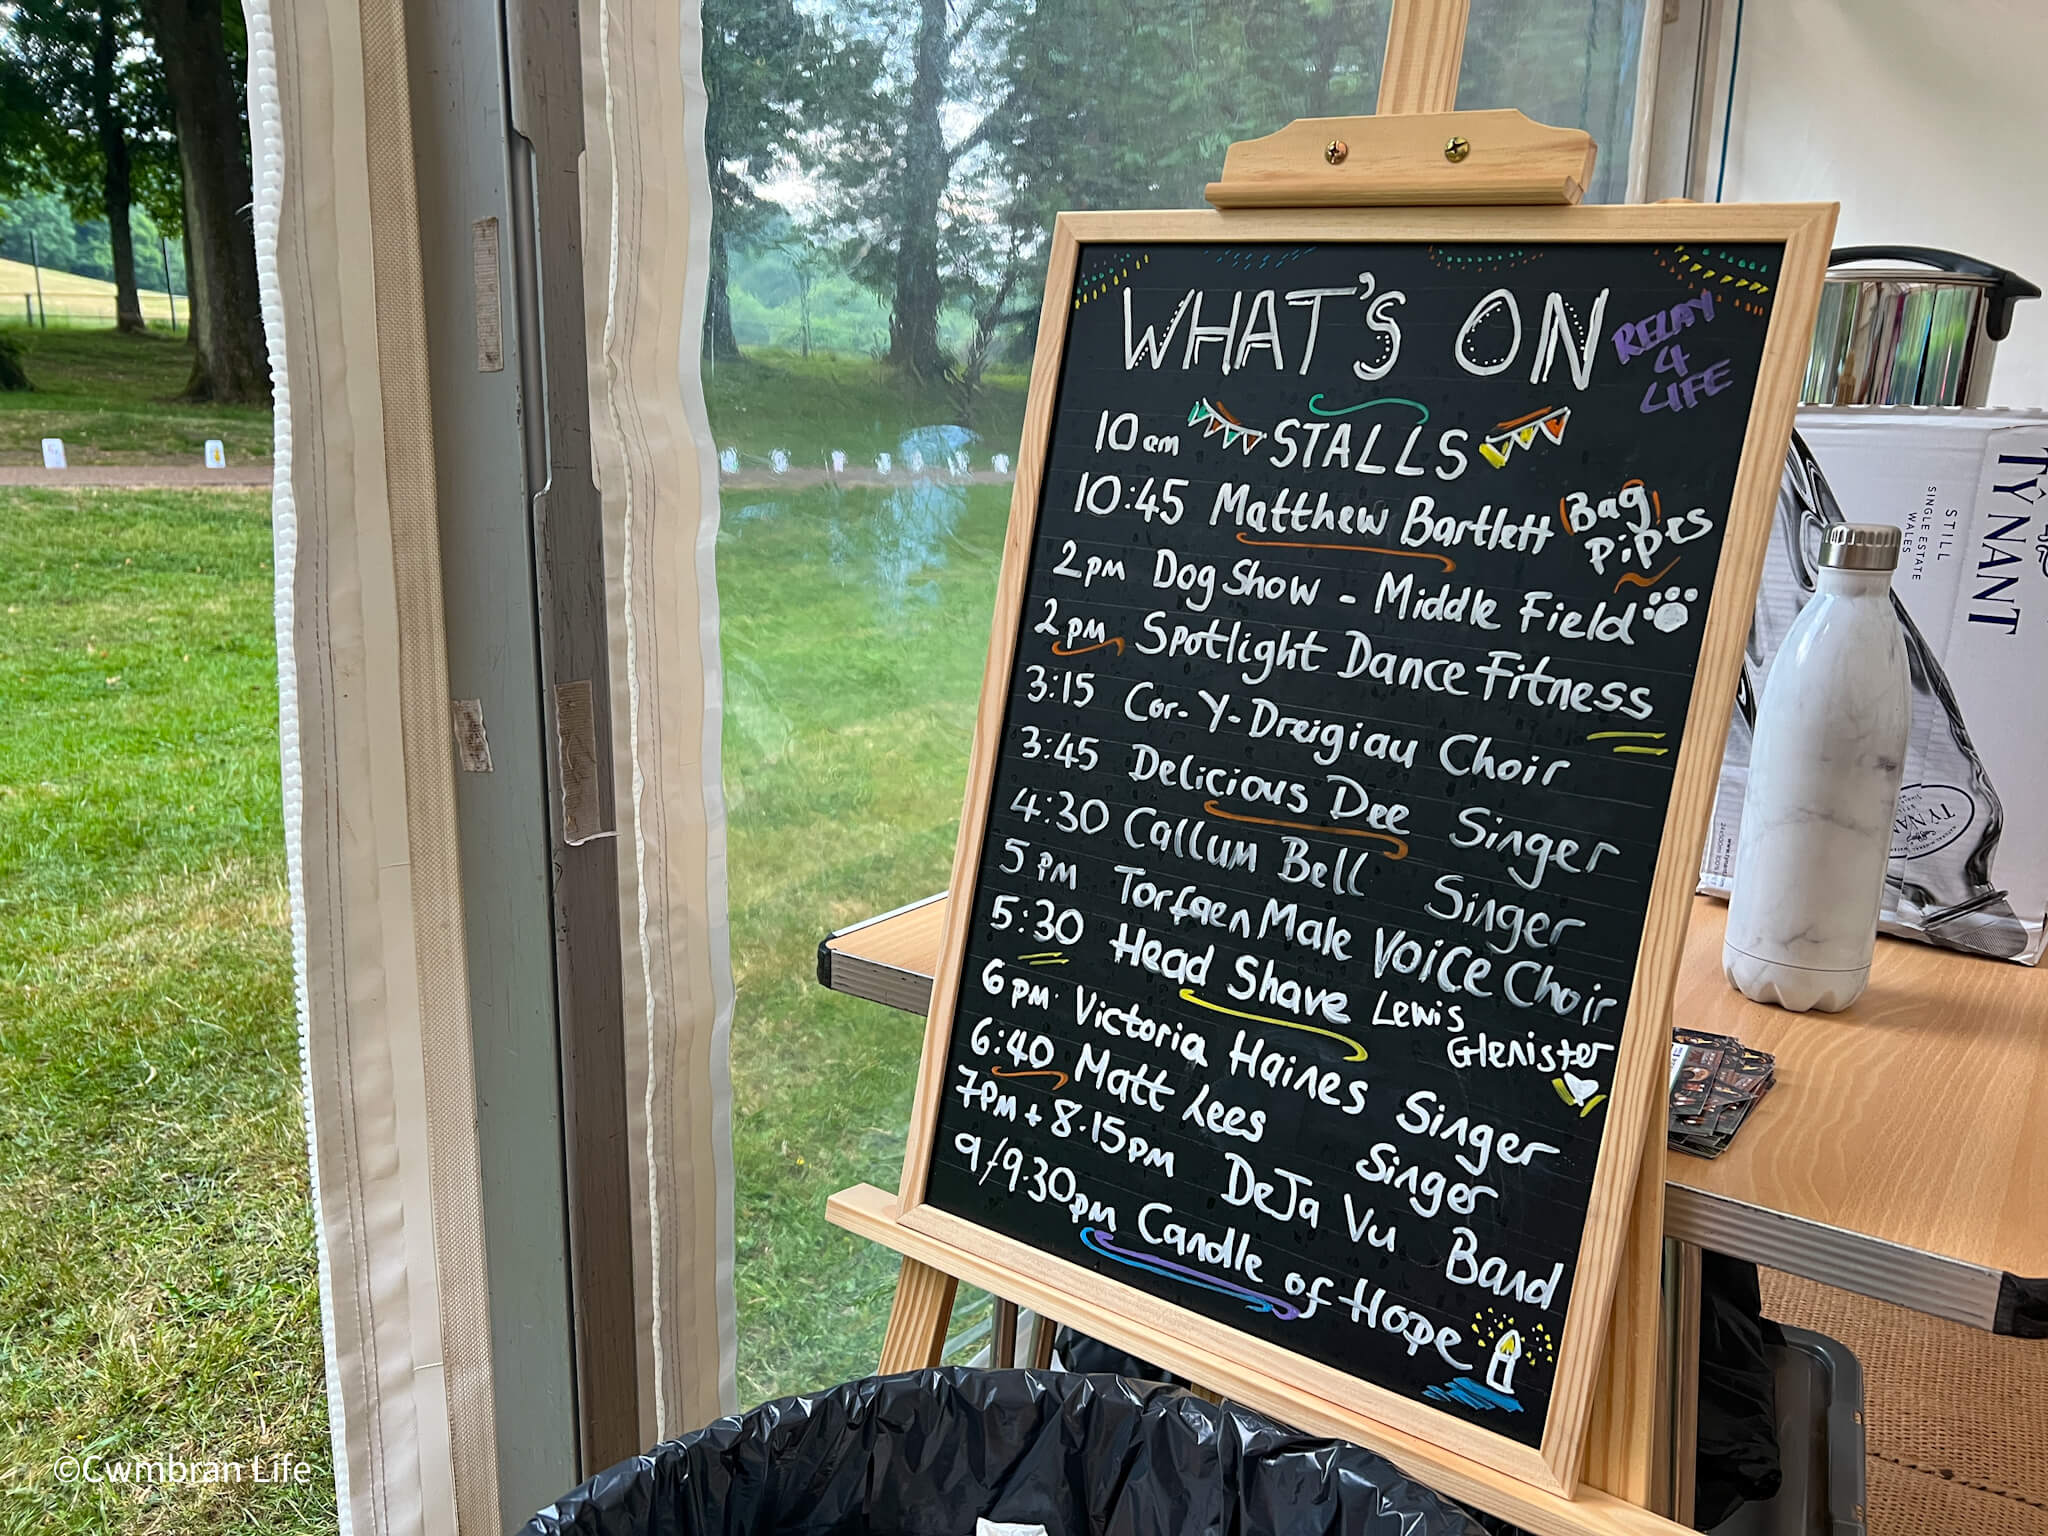 WHAT'S ON
RELAY
4
LIFE
10am STALLS
10:45 Matthew Bartlett Bag
Pipes
2pm Dog Show - Middle Field
2pm Spotlight Dance Fitness
3:15 Cor-Y-Dreigiau Choir
3:45 Delicious Dee Singer
4:30 Callum Bell Singer
5pm Torfaen Male Voice Choir
5:30 Head Shave Lewis
Glenister
6pm Victoria Haines Singer
6:40 Matt Lees Singer
7pm + 8.15pm DeJa Vu Band
9/9.30pm Candle of Hope
TŶNANT
STILL
SINGLE ESTATE
WALES
©Cwmbran Life